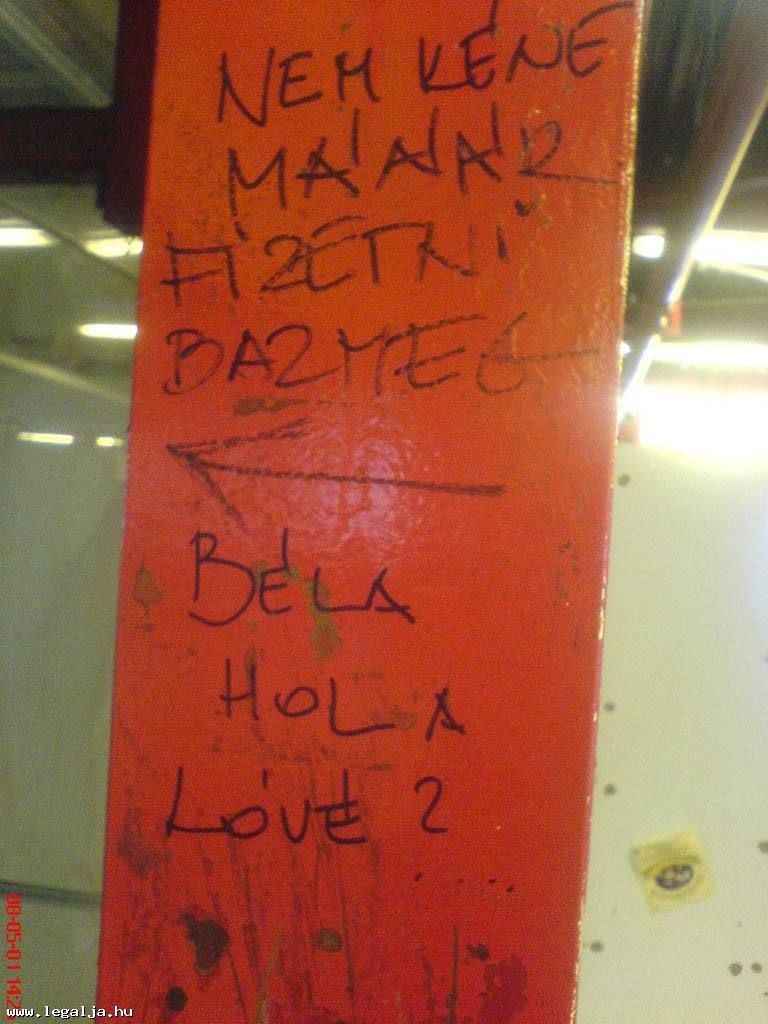 NEM KÉNE
MÁÁÁÁR
FIZETNI
BAZMEG
BÉLA
HOL A
LÓVÉ?
08-05-01 14:2
www.legalja.hu